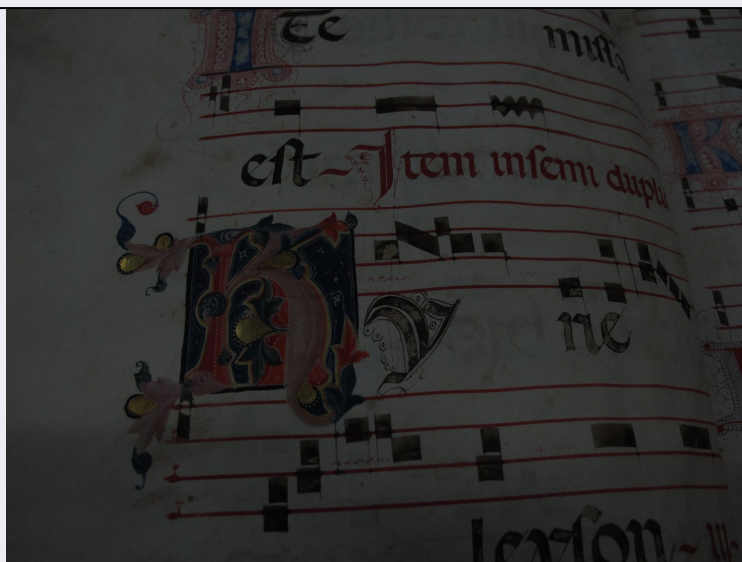 Ite missa
est Item in semi duplici
Kyrie
leyson